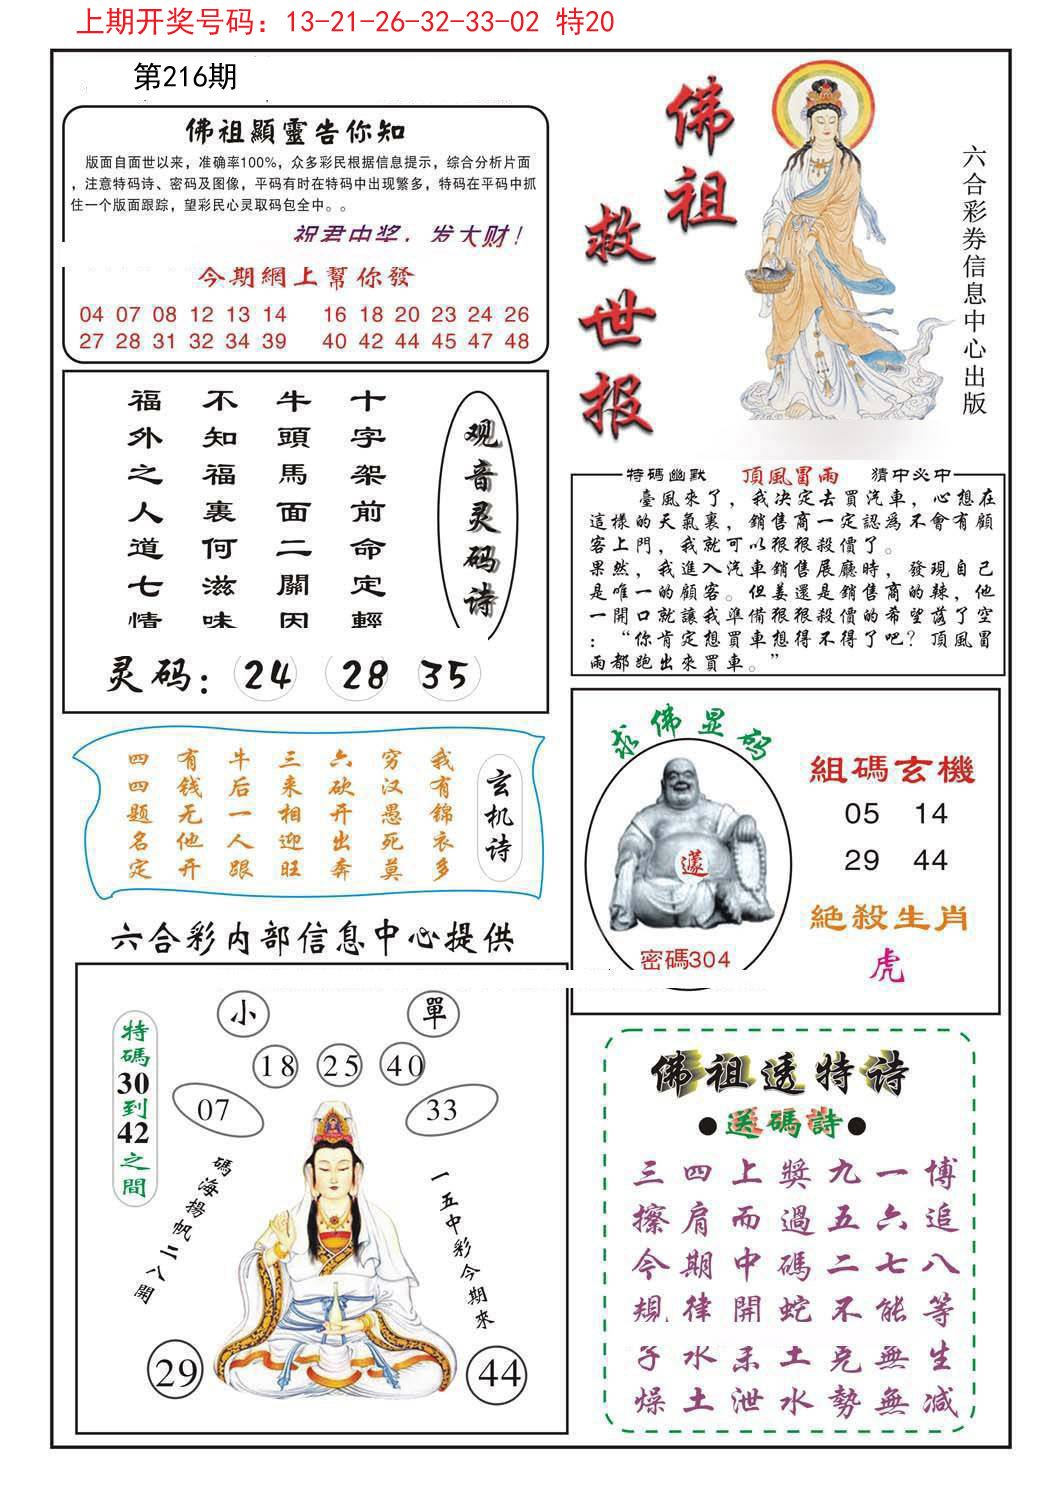 上期开奖号码：13-21-26-32-33-02 特20
第216期
佛祖顯靈告你知
版面自面世以来，准确率100%，众多彩民根据信息提示，综合分析片面
，注意特码诗、密码及图像，平码有时在特码中出现繁多，特码在平码中抓
住一个版面跟踪，望彩民心灵取码包全中。。
祝君中奖，发大财！
今期網上幫你發
04 07 08 12 13 14 16 18 20 23 24 26
27 28 31 32 34 39 40 42 44 45 47 48
佛祖
救世报
六合彩券信息中心出版
观音灵码诗
十字架前命定輕
牛頭馬面二關因
不知福裏何滋味
福外之人道七情
灵码：24 28 35
特碼幽默 頂風冒雨 猜中必中
臺風來了，我決定去買汽車，心想在
這樣的天氣裏，銷售商一定認爲不會有顧
客上門，我就可以狠狠殺價了。
果然，我進入汽車銷售展廳時，發現自己
是唯一的顧客。但姜還是銷售商的辣，他
一開口就讓我準備狠狠殺價的希望落了空
：“你肯定想買車想得不得了吧？頂風冒
雨都跑出來買車。”
玄机诗
我有锦衣多
穷汉愚死莫
六砍开出奔
三来相迎旺
牛后一人跟
有钱无他开
四四题名定
求佛显码
密碼304
組碼玄機
05 14
29 44
絕殺生肖
虎
六合彩内部信息中心提供
特碼30到42之間
小 單
18 25 40
07 33
碼海揚帆二八開
一五中彩今期來
29 44
佛祖透特诗
●送碼詩●
三四上獎九一博
擦肩而過五六追
今期中碼二七八
規律開蛇不能等
子水未土克無生
燥土泄水勢無减